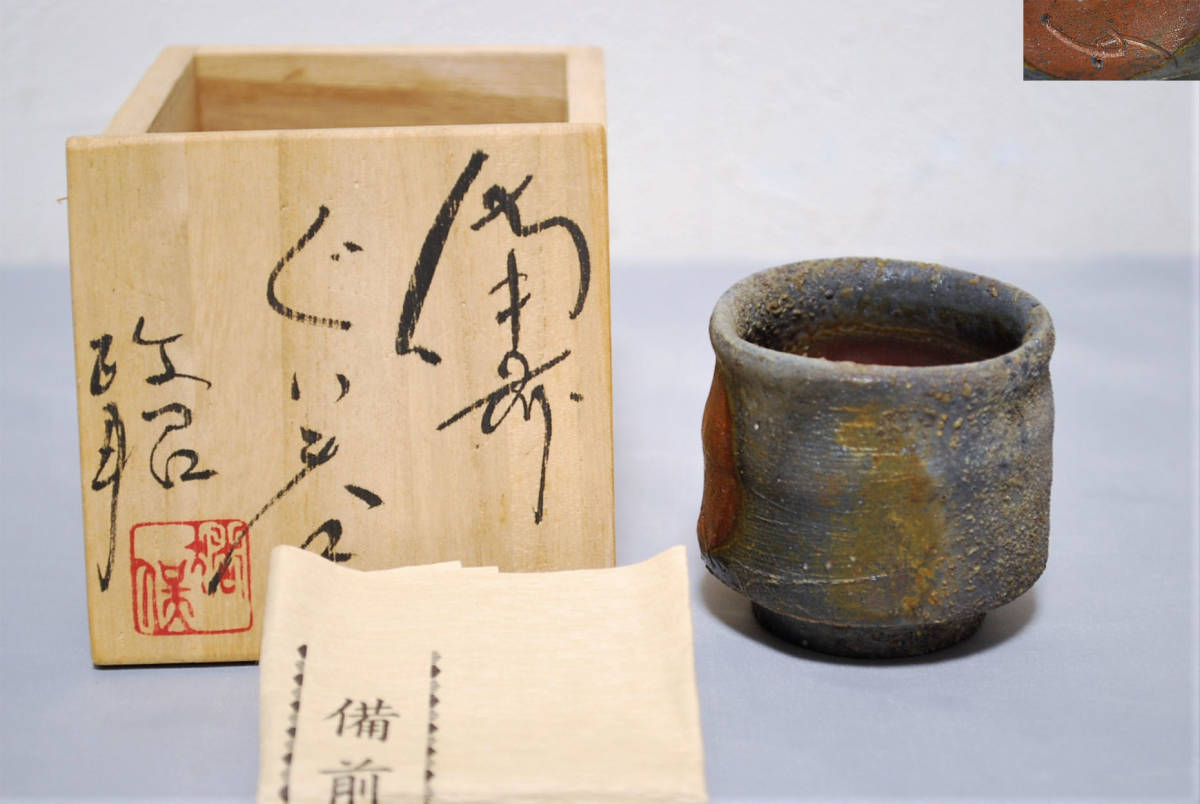 備前
ぐい呑
政昭
備前